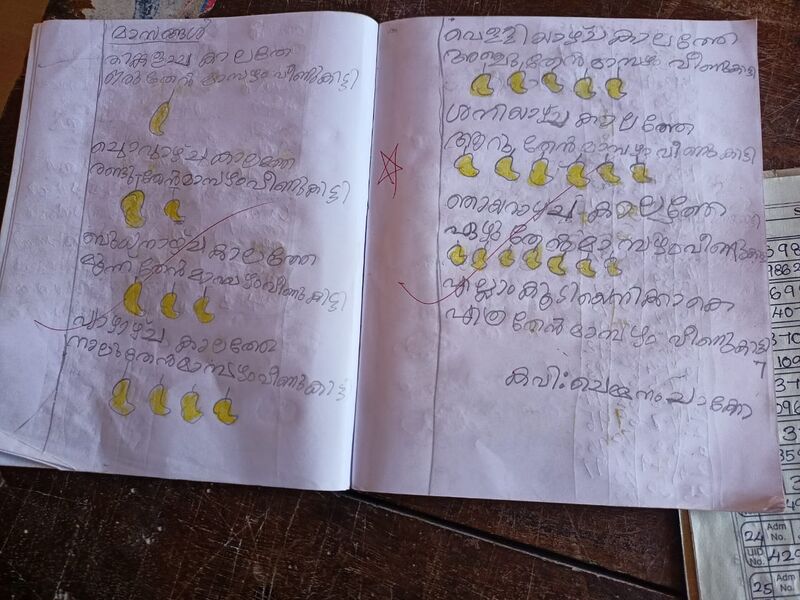 മാസങ്ങൾ
തിങ്കളാഴ്ച കാലത്തേ
ഒരുതേൻ മാമ്പഴം വീണുകിട്ടി
ചൊവ്വാഴ്ച കാലത്തേ
രണ്ടുതേൻമാമ്പഴംവീണുകിട്ടി
ബുധനാഴ്ച കാലത്തേ
മൂന്ന് തേൻമാമ്പഴംവീണുകിട്ടി
വ്യാഴാഴ്ച കാലത്തേ
നാലുതേൻമാമ്പഴംവീണുകിട്ടി
വെള്ളിയാഴ്ച കാലത്തേ
അഞ്ചുതേൻ മാമ്പഴം വീണുകിട്ടി
ശനിയാഴ്ച കാലത്തേ
ആറു തേൻമാമ്പഴം വീണുകിട്ടി
ഞായറാഴ്ച കാലത്തേ
ഏഴു തേൻമാമ്പഴംവീണുകിട്ടി
എല്ലാംകൂടിയെനിക്കാകെ
എത്ര തേൻമാമ്പഴം വീണുകിട്ടി
7
കവി:
24 Adm No.
UID No. 429
25 Adm No.